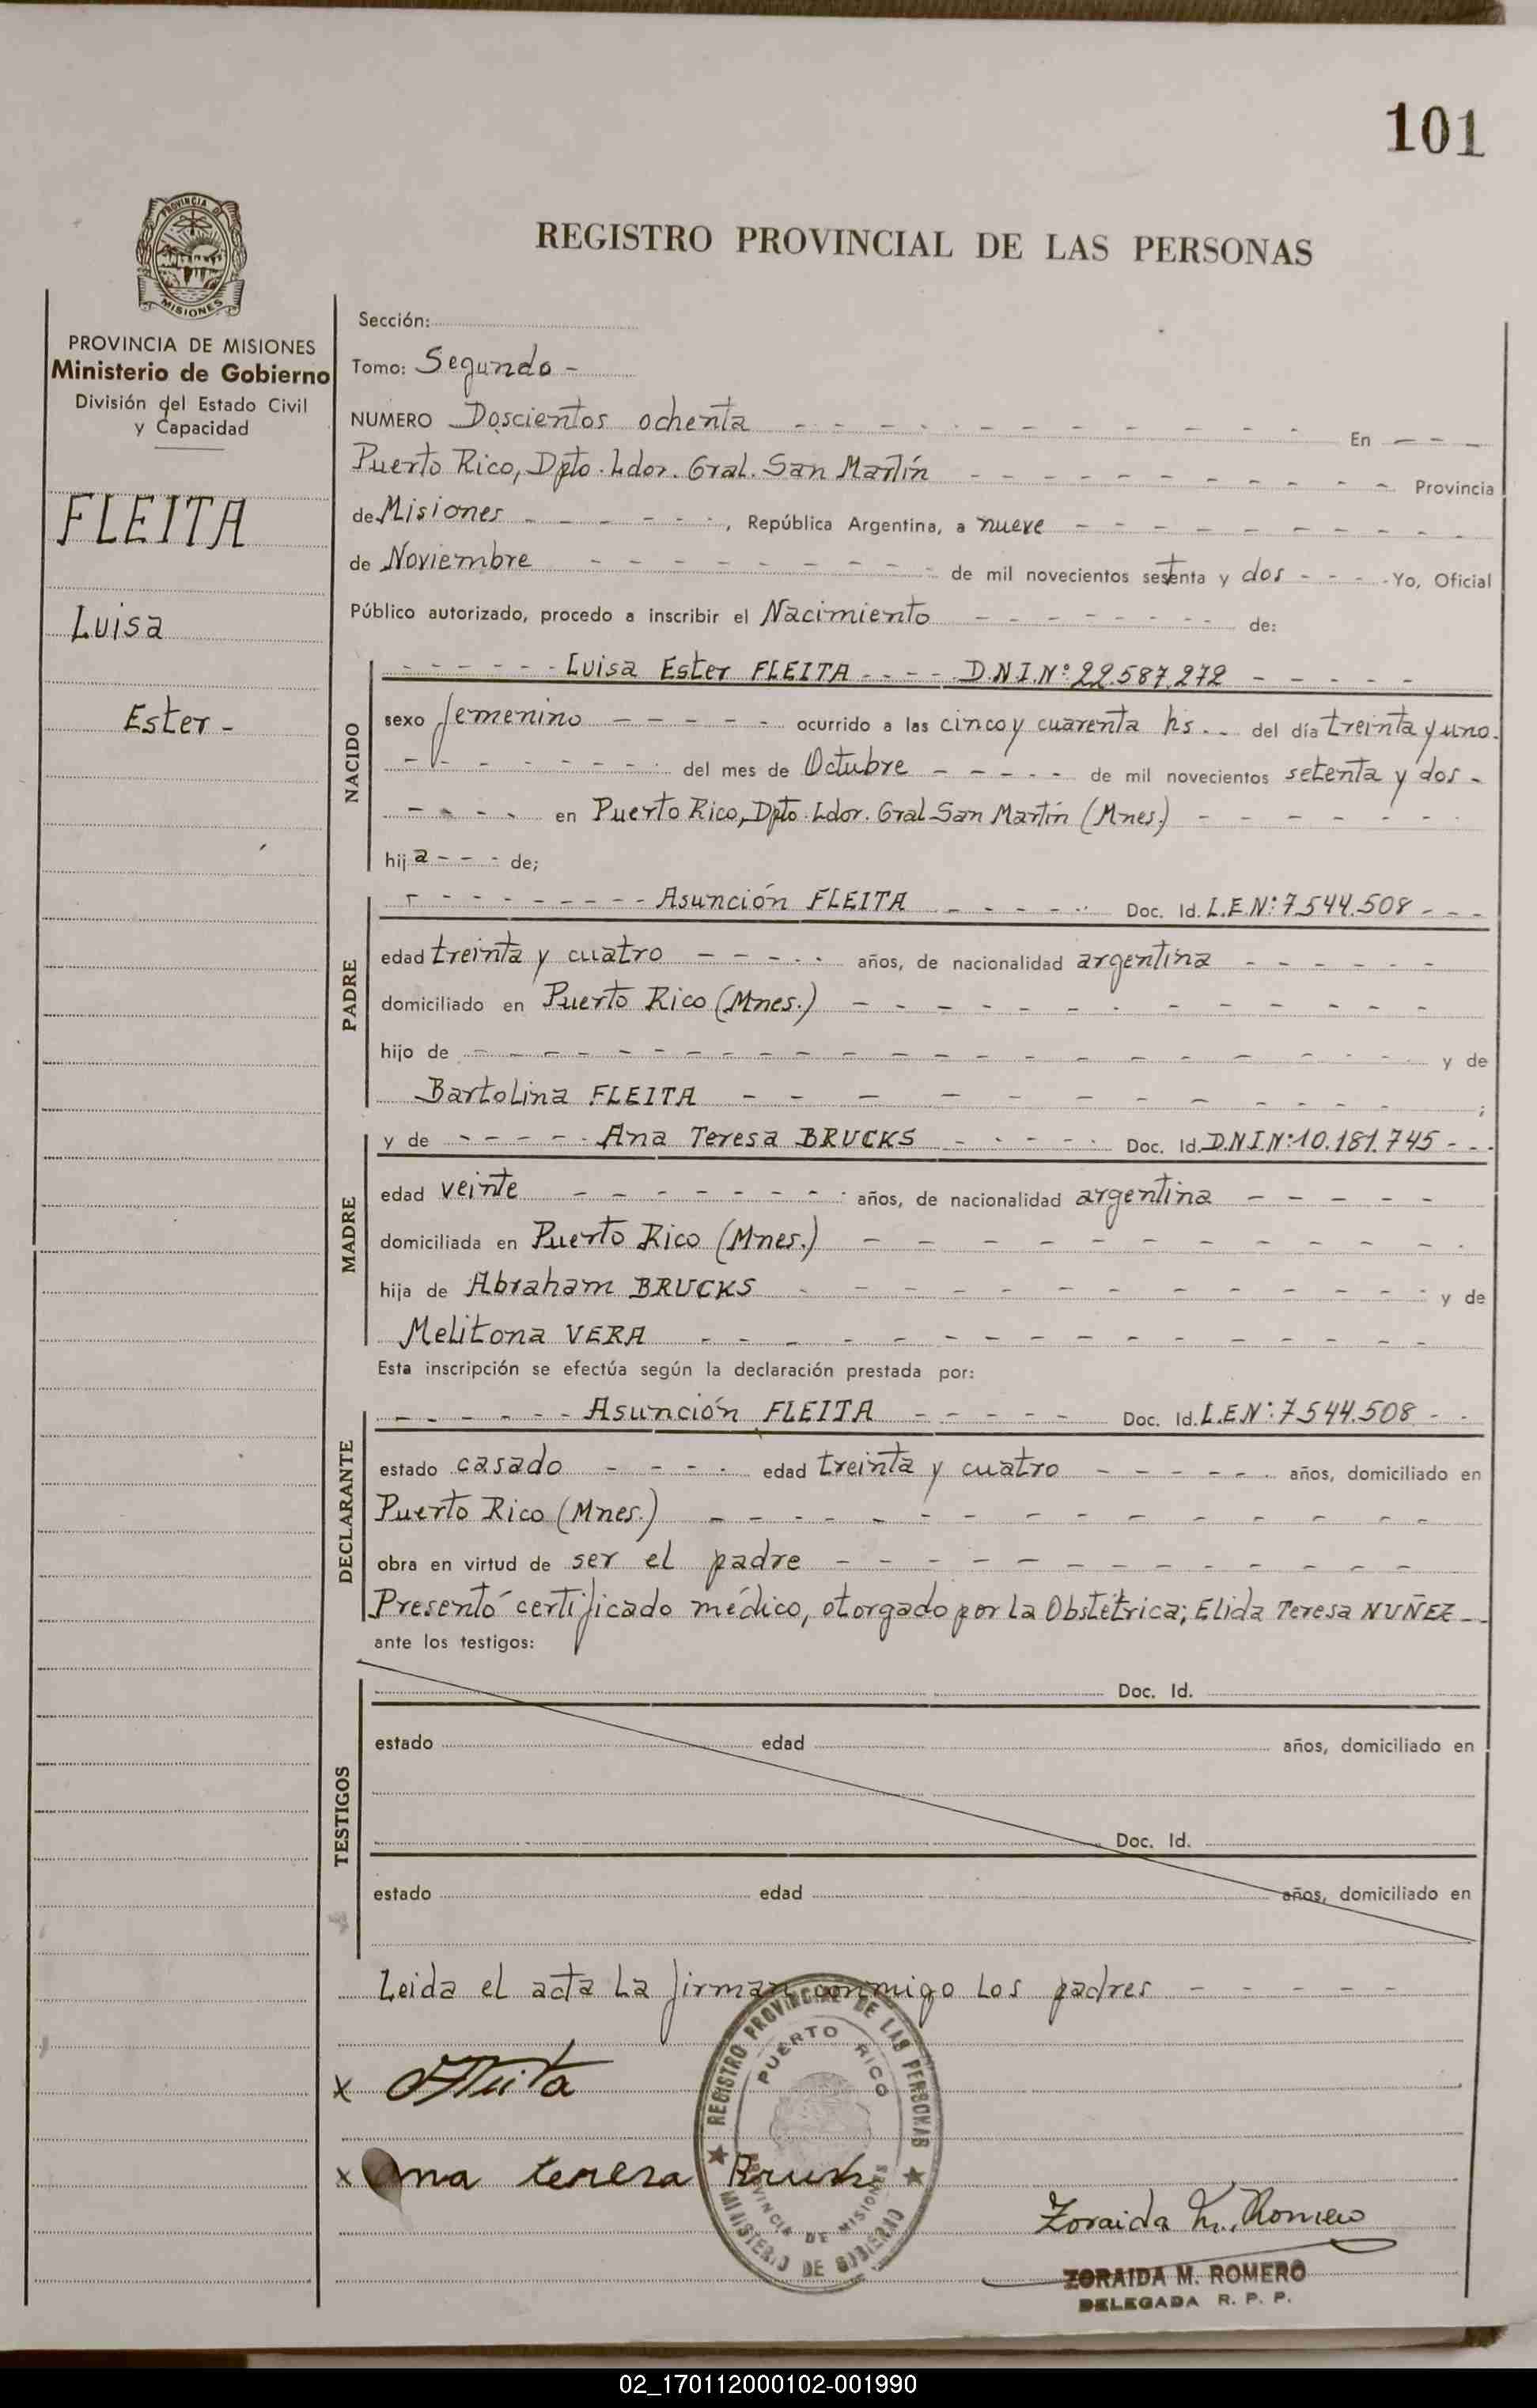 101
PROVINCIA DE
MISIONES
REGISTRO PROVINCIAL DE LAS PERSONAS
PROVINCIA DE MISIONES
Ministerio de Gobierno
División del Estado Civil
y Capacidad
FLEITA
Luisa
Ester -
Sección:
Tomo: Segundo -
NUMERO Doscientos ochenta - - - - - - - - - - - - En - - -
Puerto Rico, Dpto. Ldor. Gral. San Martín - - - - - - - - - - Provincia
de Misiones - - - - - - , República Argentina, a nueve - - - - - - - - -
de Noviembre - - - - - - - - de mil novecientos setenta y dos - - - - Yo, Oficial
Público autorizado, procedo a inscribir el Nacimiento - - - - - - - - de:
NACIDO
- - - - - - Luisa Ester FLEITA - - - - D.N.I.Nº 22.587.272 - - - - -
sexo femenino - - - - - ocurrido a las cinco y cuarenta hs. - - del día treinta y uno.
- - - - - - - - del mes de Octubre - - - - - de mil novecientos setenta y dos -
- - - - en Puerto Rico, Dpto. Ldor. Gral San Martín (Mnes.) - - - - - - -
hija - - - de;
PADRE
- - - - - - - - - Asunción FLEITA - - - - - Doc. Id. L.E.Nº 7.544.508 - - -
edad treinta y cuatro - - - - - años, de nacionalidad argentina - - - - - -
domiciliado en Puerto Rico (Mnes.) - - - - - - - - - - - - -
hijo de - - - - - - - - - - - - - - - - - - - - - y de
Bartolina FLEITA - - - - - - - - - - - - ;
MADRE
y de - - - - - Ana Teresa BRUCKS - - - - - Doc. Id. D.N.I.Nº 10.181.745 - - -
edad veinte - - - - - - - - años, de nacionalidad argentina - - - - -
domiciliada en Puerto Rico (Mnes.) - - - - - - - - - - - -
hija de Abraham BRUCKS - - - - - - - - - - - y de
Melitona VERA - - - - - - - - - - - - - - -
Esta inscripción se efectúa según la declaración prestada por:
DECLARANTE
- - - - - - Asunción FLEITA - - - - - Doc. Id. L.E.Nº 7.544.508 - -
estado casado - - - - edad treinta y cuatro - - - - - años, domiciliado en
Puerto Rico (Mnes.) - - - - - - - - - - - - - -
obra en virtud de ser el padre - - - - - - - - - - - -
Presentó certificado médico, otorgado por la Obstétrica; Elida Teresa NUÑEZ - -
ante los testigos:
TESTIGOS
Doc. Id.
estado edad años, domiciliado en
Doc. Id.
estado edad años, domiciliado en
Leida el acta la firman conmigo los padres - - - - -
x AFleita
x Ana teresa Brucks
REGISTRO PROVINCIAL DE LAS PERSONAS
PUERTO RICO
PROVINCIA DE MISIONES
MINISTERIO DE GOBIERNO
Zoraida M. Romero
ZORAIDA M. ROMERO
DELEGADA R. P. P.
02_170112000102-001990